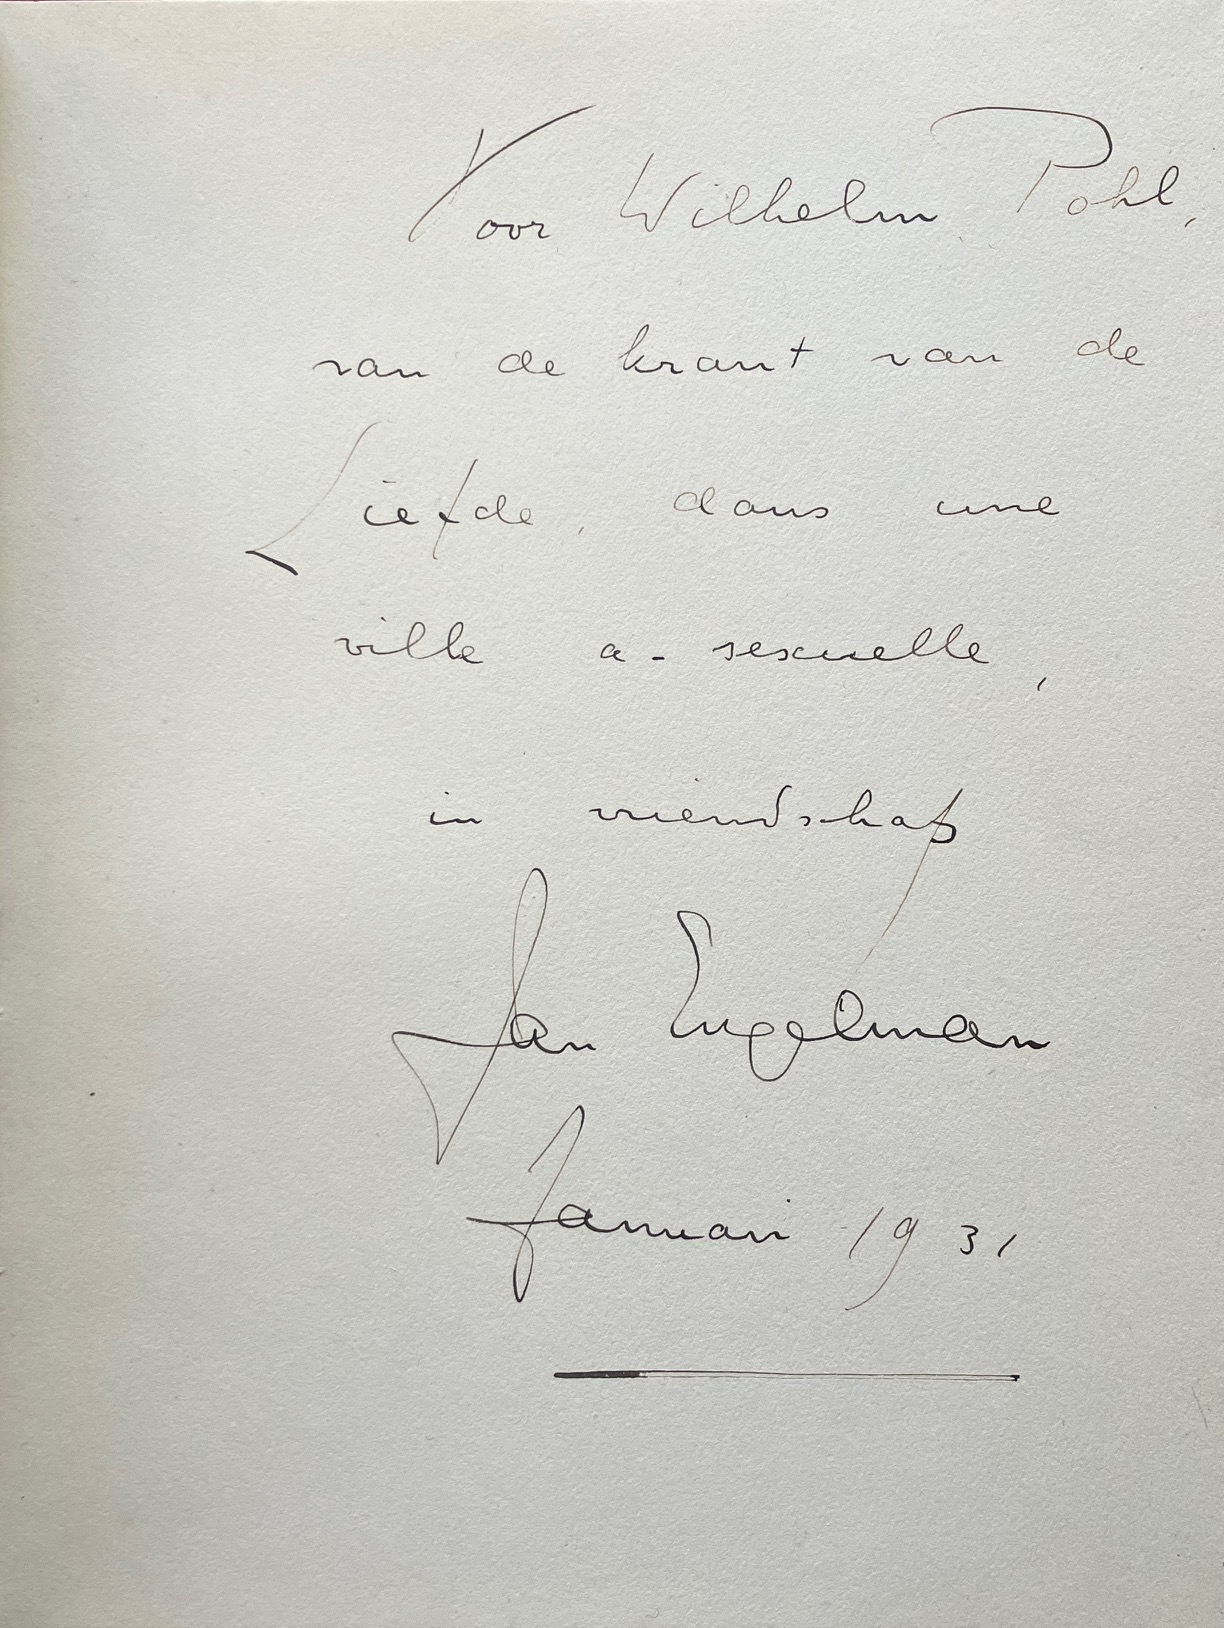 Voor Wilhelm Pohl,
van de krant van de
Liefde, dans une
ville a-sexuelle,
in vriendschap
Jan Engelman
Januari 1931